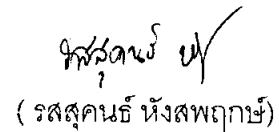 รสสุคนธ์ ห
( รสสุคนธ์ หังสพฤกษ์)